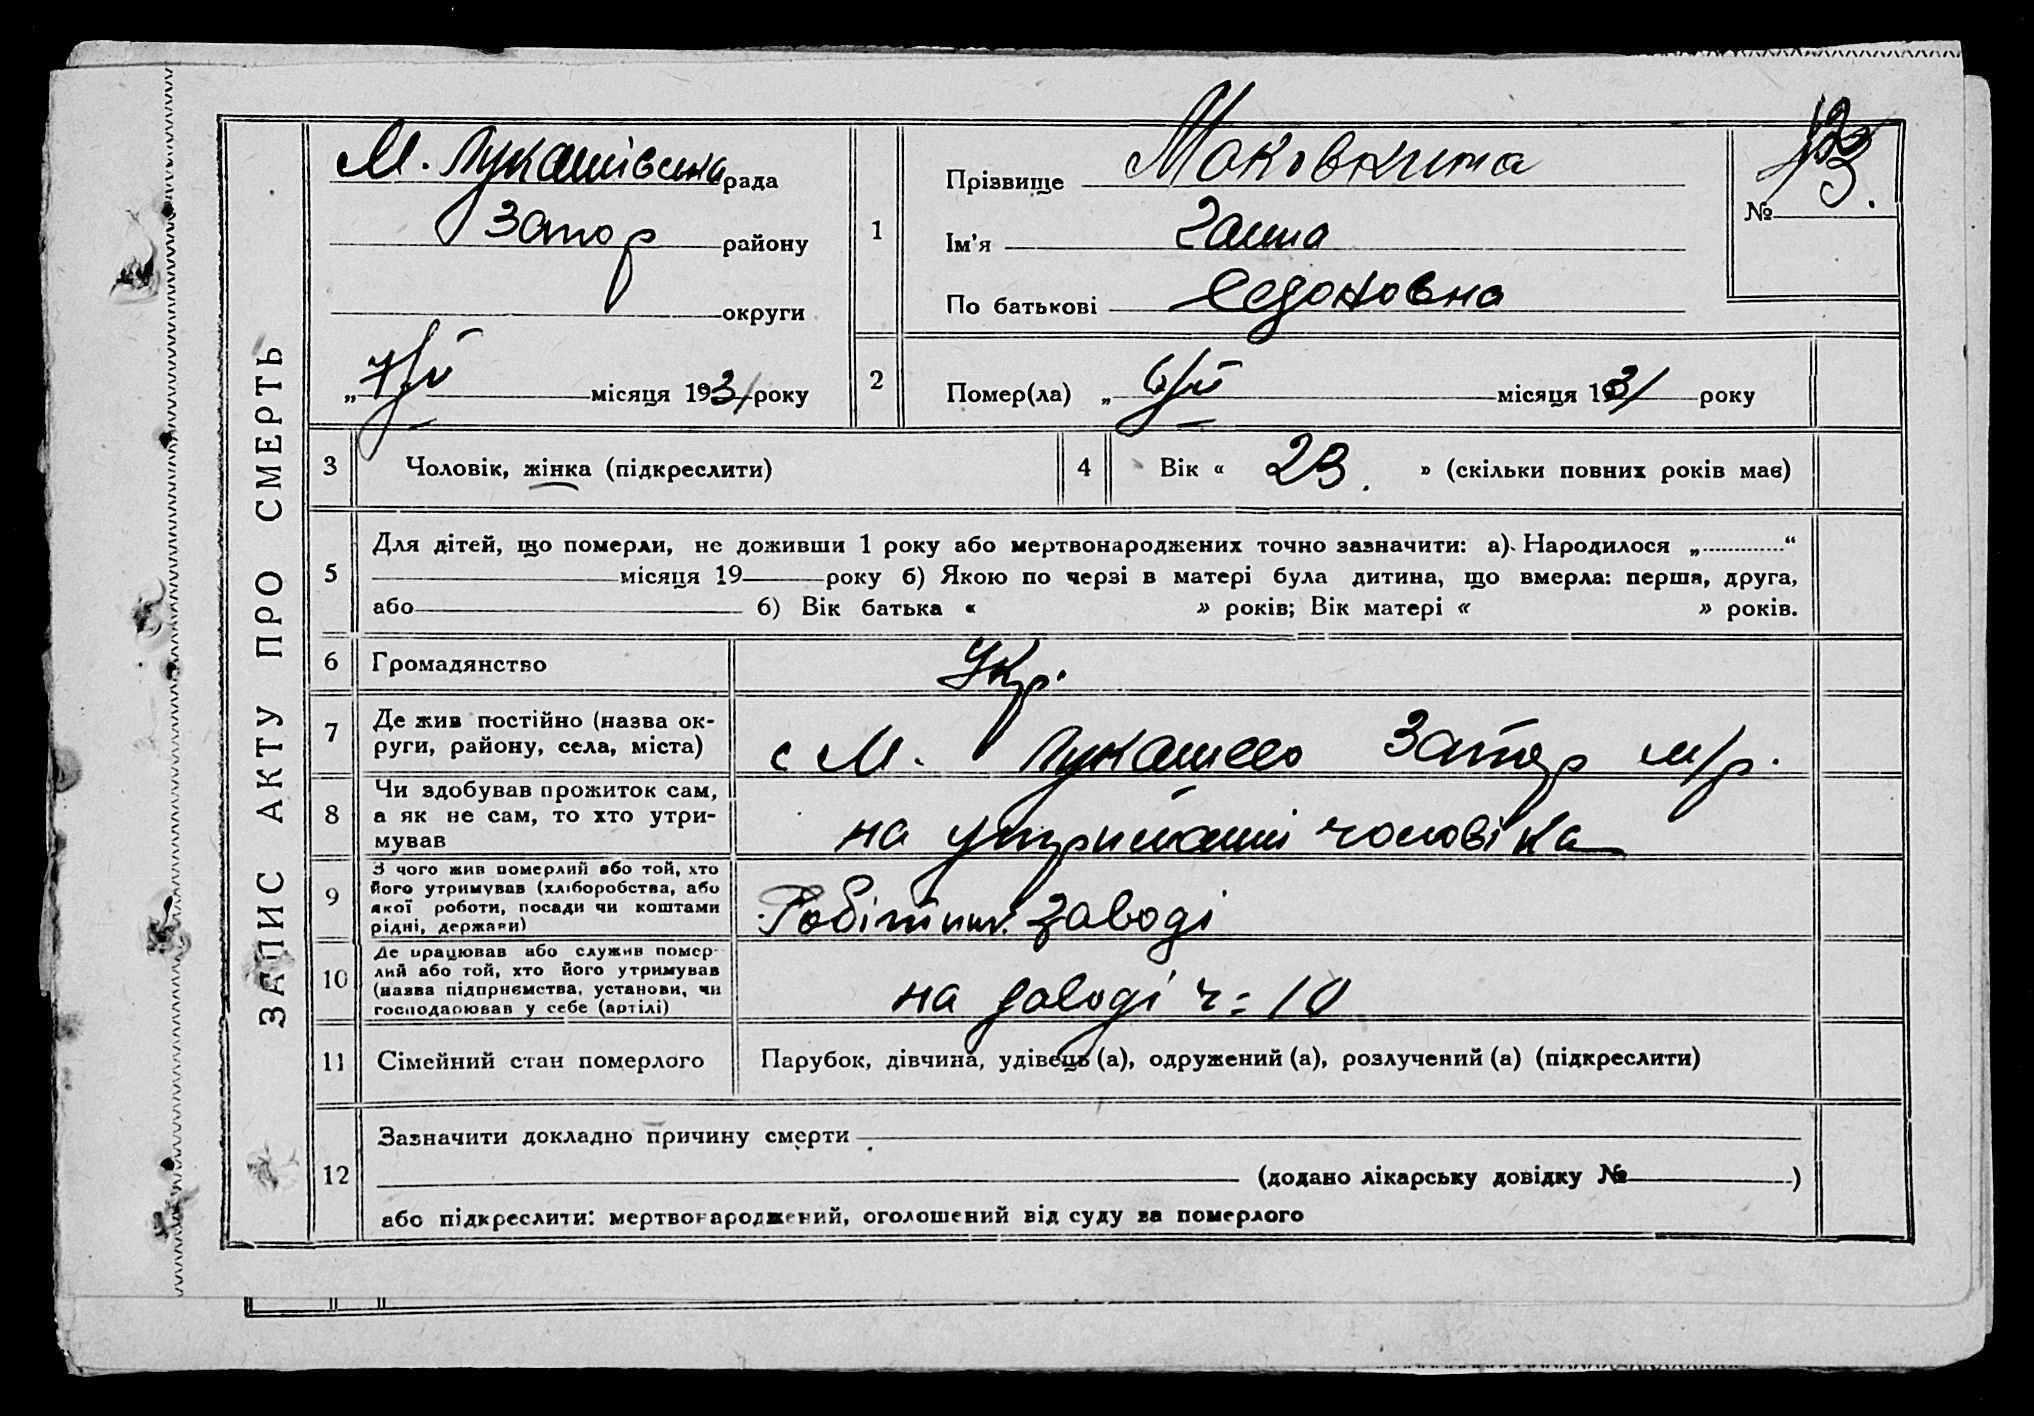 ЗАПИС АКТУ ПРО СМЕРТЬ
М. Лукашівська рада
Запор району
округи
„ 7/IV місяця 1931 року
1
Прізвище Маковкина
Ім'я Ганна
По батькові
№ 3.
2
Помер(ла) „ 6/IV місяця 1931 року
3 Чоловік, жінка (підкреслити)
4 Вік « 23. » (скільки повних років має)
5
Для дітей, що померли, не доживши 1 року або мертвонароджених точно зазначити: а) Народилося „ “
місяця 19 року б) Якою по черзі в матері була дитина, що вмерла: перша, друга,
або б) Вік батька « » років; Вік матері « » років.
6 Громадянство Укр.
7 Де жив постійно (назва ок-
руги, району, села, міста)
с М. Лукашево Запор м/р.
8 Чи здобував прожиток сам,
а як не сам, то хто утри-
мував
на утриманні чоловіка
9 З чого жив померлий або той, хто
його утримував (хліборобства, або
якої роботи, посади чи коштами
рідні, держави)
Робітник заводі
10 Де працював або служив помер-
лий або той, хто його утримував
(назва підприємства, установи, чи
господарював у себе (артілі)
на заводі ч = 10
11 Сімейний стан померлого Парубок, дівчина, удівець (а), одружений (а), розлучений (а) (підкреслити)
12
Зазначити докладно причину смерти
(додано лікарську довідку № )
або підкреслити: мертвонароджений, оголошений від суду за померлого